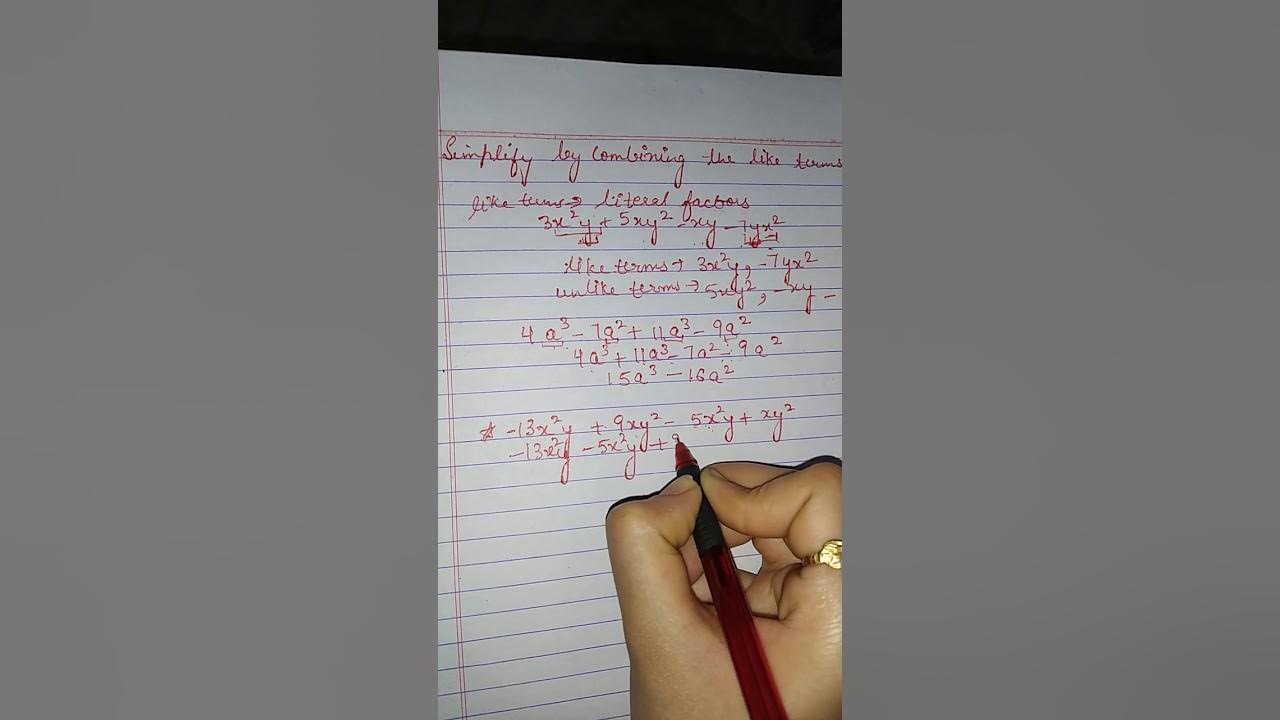 Simplify by combining the like terms
like terms → literal factors
3x²y + 5xy² - xy - 7yx²
like terms → 3x²y, -7yx²
unlike terms → 5xy², -xy -
4a³ - 7a² + 11a³ - 9a²
4a³ + 11a³ - 7a² - 9a²
15a³ - 16a²
☆ -13x²y + 9xy² - 5x²y + xy²
-13x²y - 5x²y + 9